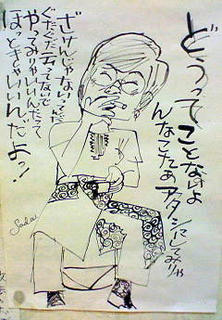 どうってことないよ
んなこたあアタシにしてみりゃ
ざけんじゃないってんだ
ぐだぐだ云ってないで
やってみりゃいいんだって
ほっときゃいいんだよっ!